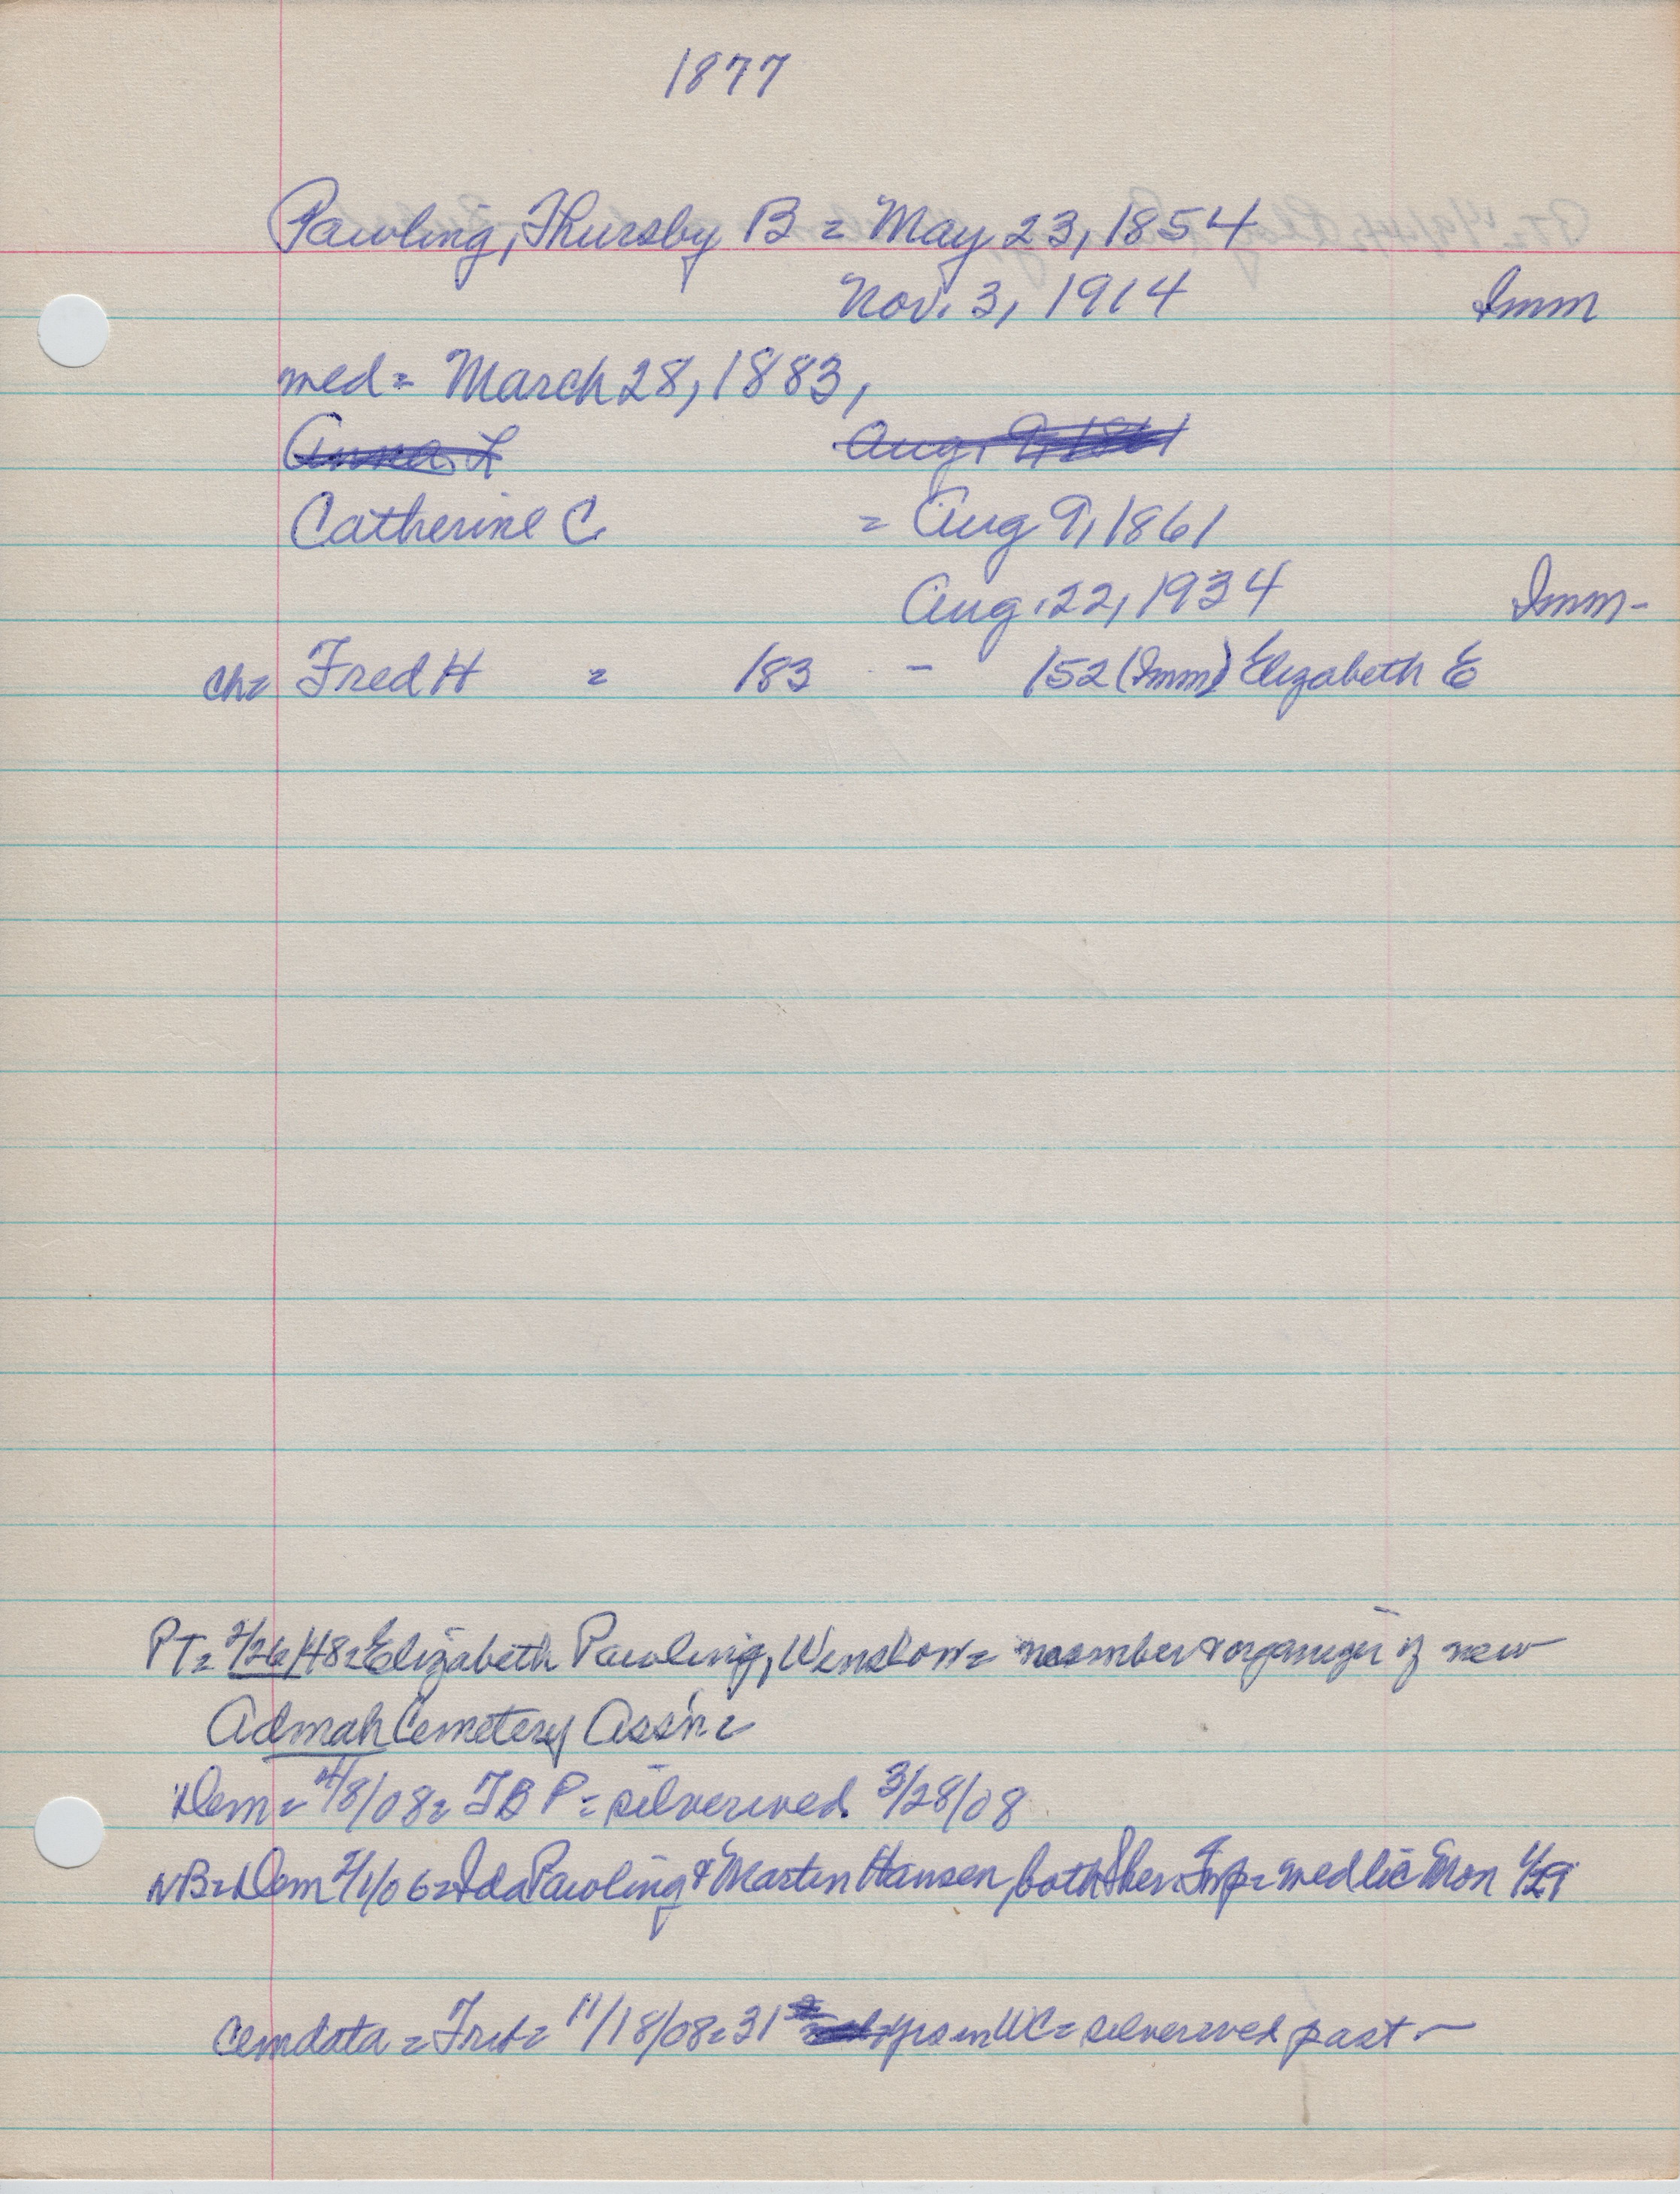 1877
Pawling, Thursby B = May 23, 1854
Nov. 3, 1914 Imm
wed = March 28, 1883,
Anna L Aug. 9, 1861
Catherine C = Aug 9, 1861
Aug. 22, 1934 Imm-
ch= Fred H = 183 - 152 (Imm) Elizabeth E
PT= 2/26/48= Elizabeth Pawling, Winslow= member & organizer of new
Admah Cemetery Ass'n=
Dem= 4/8/08= TBP= silverwed 3/28/08
NB= Dem 2/1/06= Ida Pawling & Martin Hansen, both Sher. Twp= wed lic Mon 1/29
cemdata = Trib= 11/18/08= 31 yrs in WC= silverwed past -